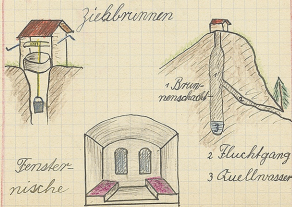 Ziehbrunnen
1 Brun-
nenschacht
2 Fluchtgang
3 Quellwasser
Fenster-
nische